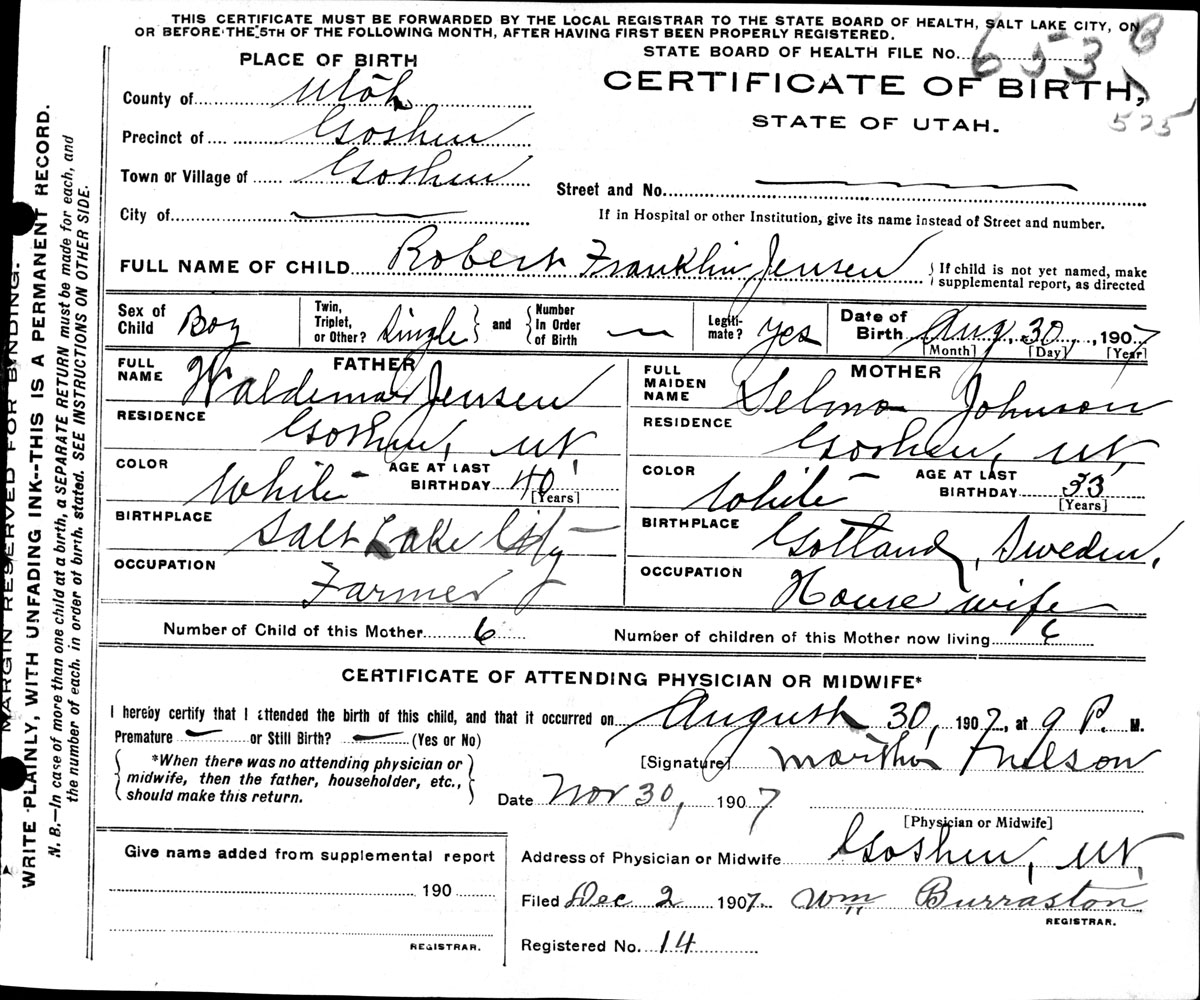 THIS CERTIFICATE MUST BE FORWARDED BY THE LOCAL REGISTRAR TO THE STATE BOARD OF HEALTH, SALT LAKE CITY, ON
OR BEFORE THE 5TH OF THE FOLLOWING MONTH, AFTER HAVING FIRST BEEN PROPERLY REGISTERED.
STATE BOARD OF HEALTH FILE No. 653 B
PLACE OF BIRTH
CERTIFICATE OF BIRTH,
525
STATE OF UTAH.
County of Utah
Precinct of Goshen
Town or Village of Goshen
Street and No.
City of
If in Hospital or other Institution, give its name instead of Street and number.
FULL NAME OF CHILD Robert Franklin Jensen
If child is not yet named, make
supplemental report, as directed
Sex of Child Boy
Twin, Triplet, or Other? Single
and
Number In Order of Birth
Legiti-mate? Yes
Date of Birth Aug. 30, 1907
[Month] [Day] [Year]
FATHER
FULL NAME Waldemar Jensen
RESIDENCE Goshen, Ut.
COLOR White
AGE AT LAST BIRTHDAY 40
[Years]
BIRTHPLACE Salt Lake City
OCCUPATION Farmer
MOTHER
FULL MAIDEN NAME Selma Johnson
RESIDENCE Goshen, Ut.
COLOR White
AGE AT LAST BIRTHDAY 33
[Years]
BIRTHPLACE Gotland, Sweden,
OCCUPATION House wife
Number of Child of this Mother 6
Number of children of this Mother now living 6
CERTIFICATE OF ATTENDING PHYSICIAN OR MIDWIFE*
I hereby certify that I attended the birth of this child, and that it occurred on August 30, 1907, at 9 P. M.
Premature or Still Birth? (Yes or No)
*When there was no attending physician or
midwife, then the father, householder, etc.,
should make this return.
[Signature] Martha Nilson
Date Nov 30, 1907
[Physician or Midwife]
Give name added from supplemental report
190
REGISTRAR.
Address of Physician or Midwife Goshen, Ut.
Filed Dec 2 1907. Wm Burraston
REGISTRAR.
Registered No. 14
MARGIN RESERVED FOR BINDING.
WRITE PLAINLY, WITH UNFADING INK--THIS IS A PERMANENT RECORD.
N. B.—In case of more than one child at a birth, a SEPARATE RETURN must be made for each, and
the number of each, in order of birth, stated. SEE INSTRUCTIONS ON OTHER SIDE.